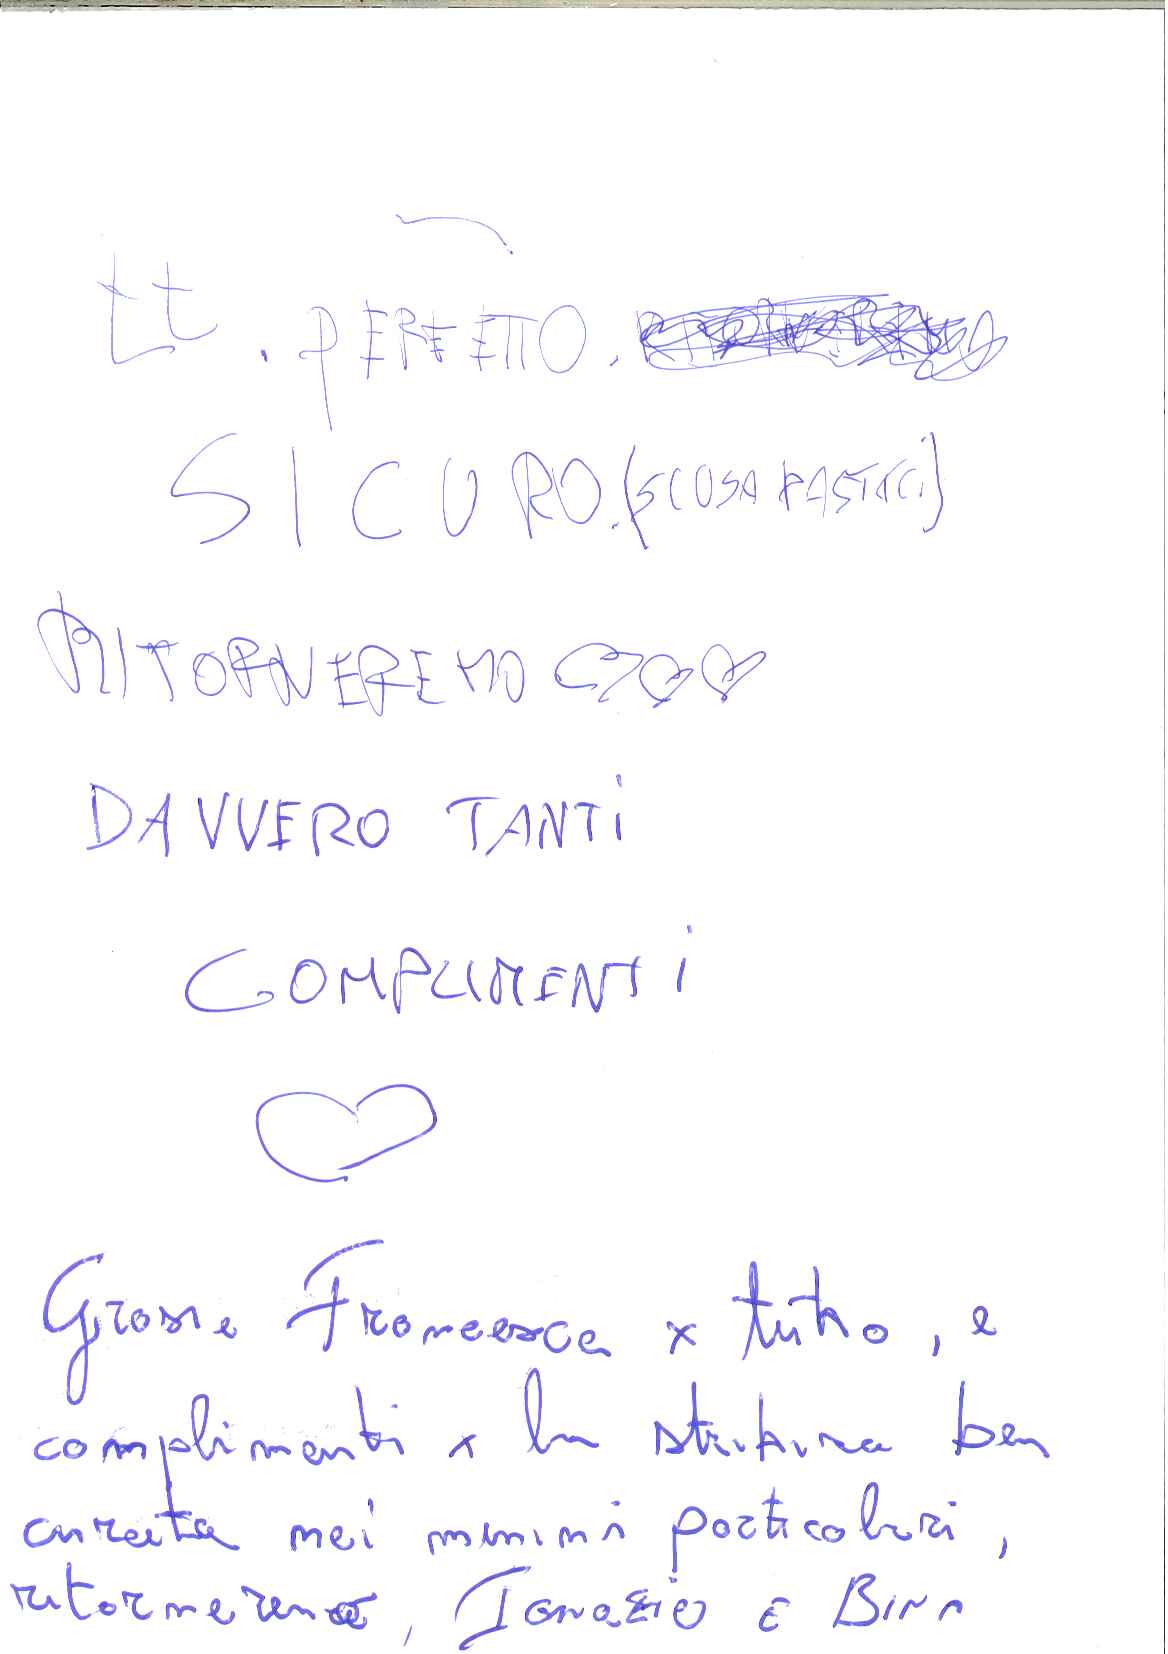 tt. PERFETTO.
SICURO. (SCUSA PASTICCI)
RITORNEREMO
DAVVERO TANTI
COMPLIMENTI
Grazie Francesca x tutto, e
complimenti x la struttura ben
curata nei minimi particolari,
ritorneremo, Ignazio e